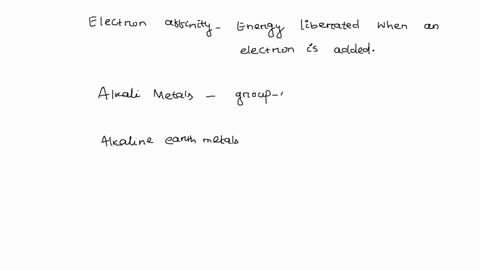 Electron affinity - Energy liberated when an
electron is added.
Alkali Metals - group-1
Alkaline earth metals